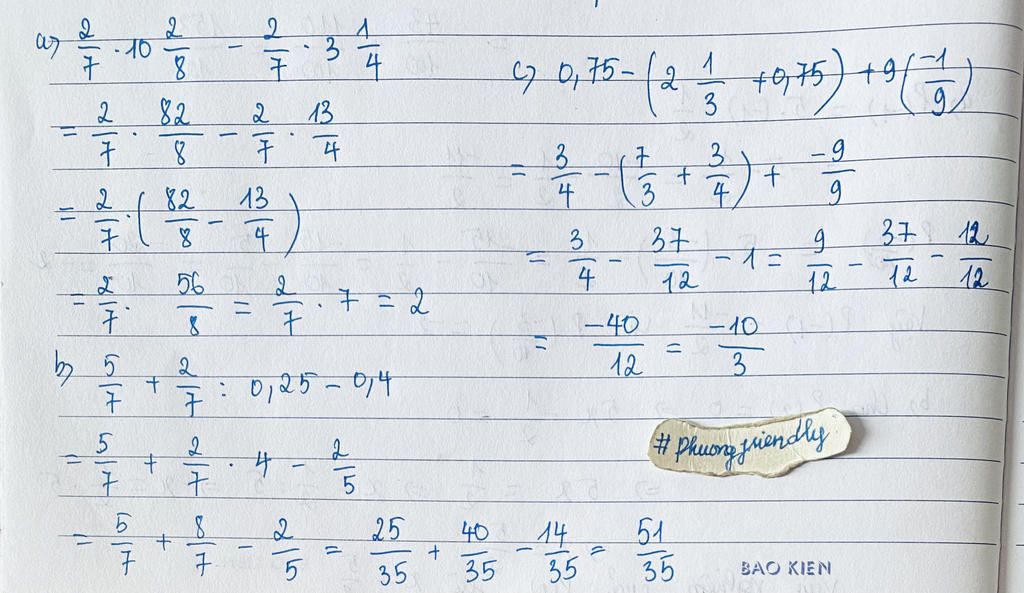 a) 2/7 · 10 2/8 − 2/7 · 3 1/4
= 2/7 · 82/8 − 2/7 · 13/4
= 2/7 · (82/8 − 13/4)
= 2/7 · 56/8 = 2/7 · 7 = 2
b) 5/7 + 2/7 : 0,25 − 0,4
= 5/7 + 2/7 · 4 − 2/5
= 5/7 + 8/7 − 2/5 = 25/35 + 40/35 − 14/35 = 51/35
c) 0,75 − (2 1/3 + 0,75) + 9 (−1/9)
= 3/4 − (7/3 + 3/4) + −9/9
= 3/4 − 37/12 − 1 = 9/12 − 37/12 − 12/12
= −40/12 = −10/3
# phuongfriendly
BAO KIEN